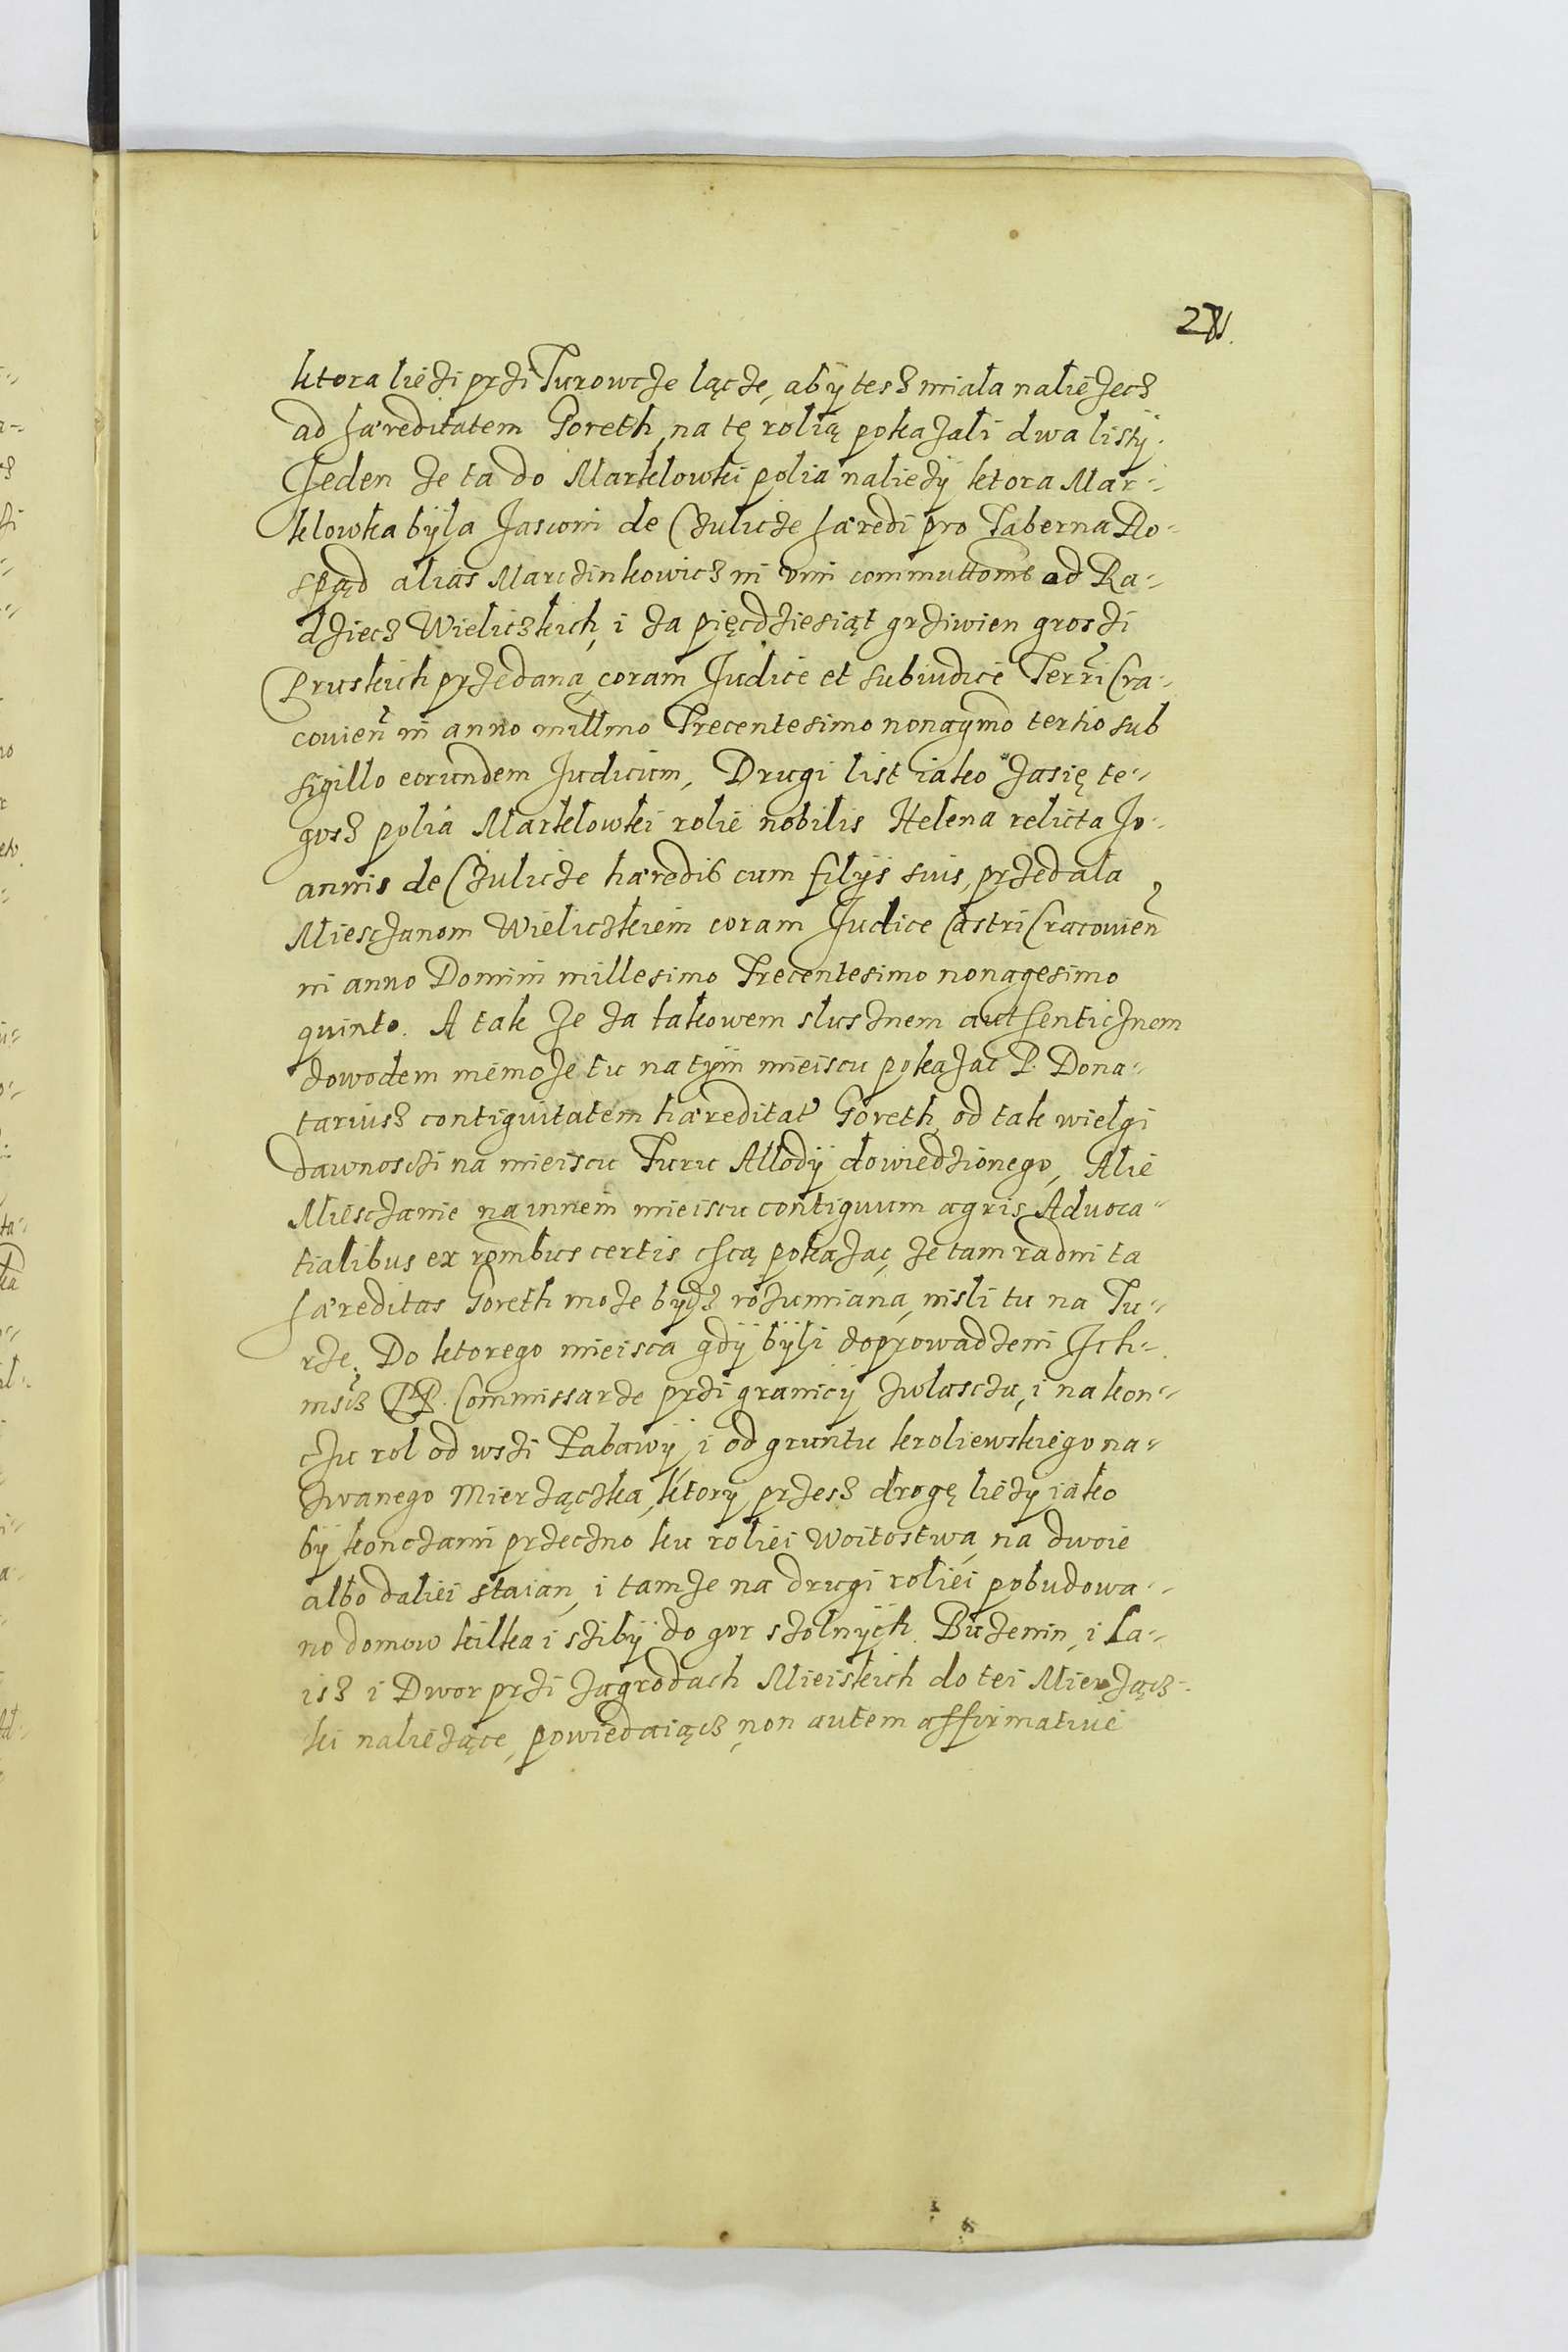 ktora lieżi przi Turowcze lącze, abÿ tesz miala należecz
ad hæreditatem Goreth, na tę rolią pokazali dwa listÿ.
Jeden że ta do Marklowki polia należÿ ktora Mar-
klowka bÿla Jasconi de Czulicze hæredi pro Taberna Ro-
spąd alias Marczinkowicz in vim commuttonis ad Ra-
dziecz Wieliczkich, i za pięcdziesiąt grziwien groszi
Pruskich przedana, coram Judice et subiudice Terri Cra-
covien in anno millmo Trecentesimo nonagmo tertio sub
sigillo eorundem Judicum, Drugi list iako zasię te-
gosz polia Marklowki rolie nobilis Helena relicta Jo-
annis de Czulicze hæredis cum filÿs suis, przedala
Miesczanom Wieliczkiem coram Judice Castri Cracovien
in anno Domini millesimo Trecentesimo nonagesimo
quinto. A tak że za takowem slusznem authenticznem
dowodem niemoże tu na tÿm mieiscu pokazac P. Dona-
tariusz contiguitatem hæreditat Goreth, od tak wielgi
dawnosczi na mieiscu Turu Allodÿ dowiedzionego, Alie
Miesczanie na innem mieiscu contiguum agris Advoca-
tialibus ex ronibus certis chcą pokazac, że tam radni ta
hæreditas Goreth może bydz rozumiana, nisli tu na Tu-
rze. Do ktorego mieisca gdÿ bÿli doprowadzeni Ich-
mscz PP. Commissarze przi granicÿ zwlascza, i na kon-
czu rol od wszi Labawÿ, i od gruntu kroliewskiego na-
zwanego Mierżączka, ktory przesz drogę lieży iako
bÿ konczami przeczno ku roliei Woitostwa na dwoie
albo daliei staian, i tamże na drugi roliei pobudowa-
no domow kilka i sziby do gor szolnÿch. Buzenin, i La-
isz i Dwor przi zagrodach Mieiskich do tei Mierżącz-
ki należące, powiedaiącz non autem affirmative